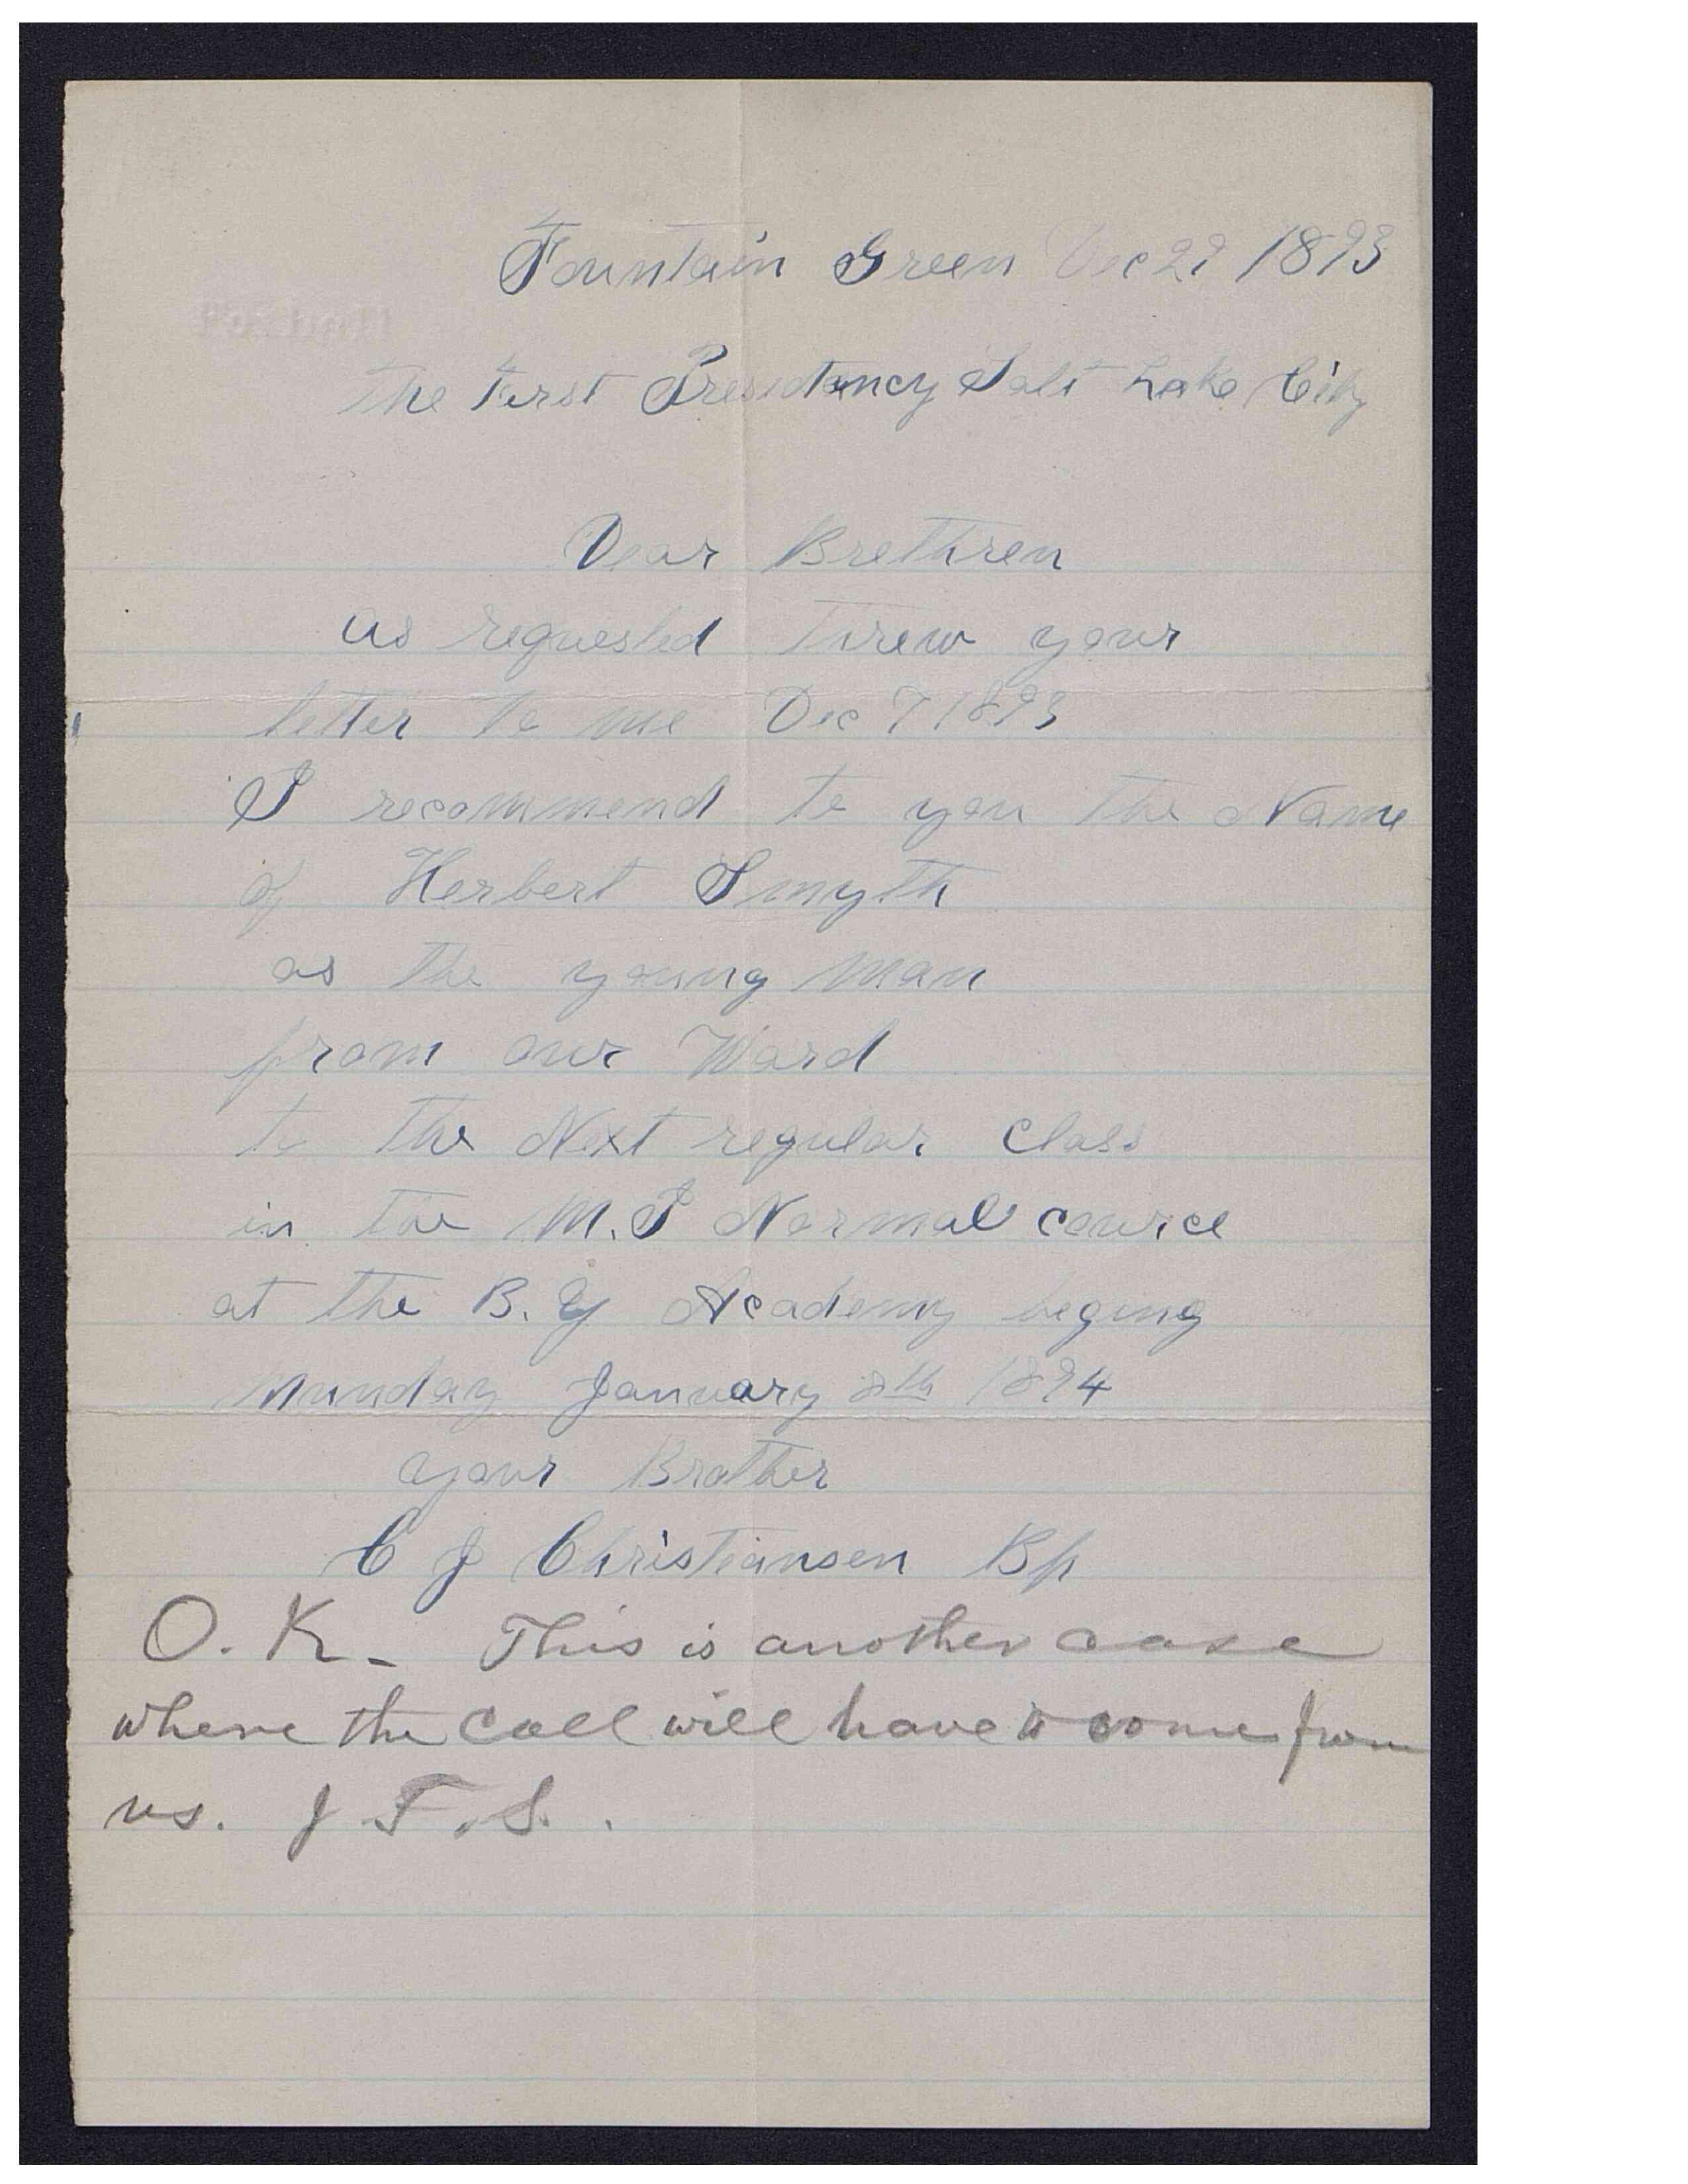 Fountain Green Dec 29 1893
the First Presidency Salt Lake City
Dear Brethren
as requested threw your
letter to me Dec 7 1893
I recommend to you the Name
of Herbert Smyth
as the young man
from our Ward
to the Next regular Class
in the M.I Normal cource
at the B. Y Academy beging
Munday January 8th 1894
your Brother
C J Christiansen Bp
O. K. - This is another case
where the call will have to come from
us. J. F. S.